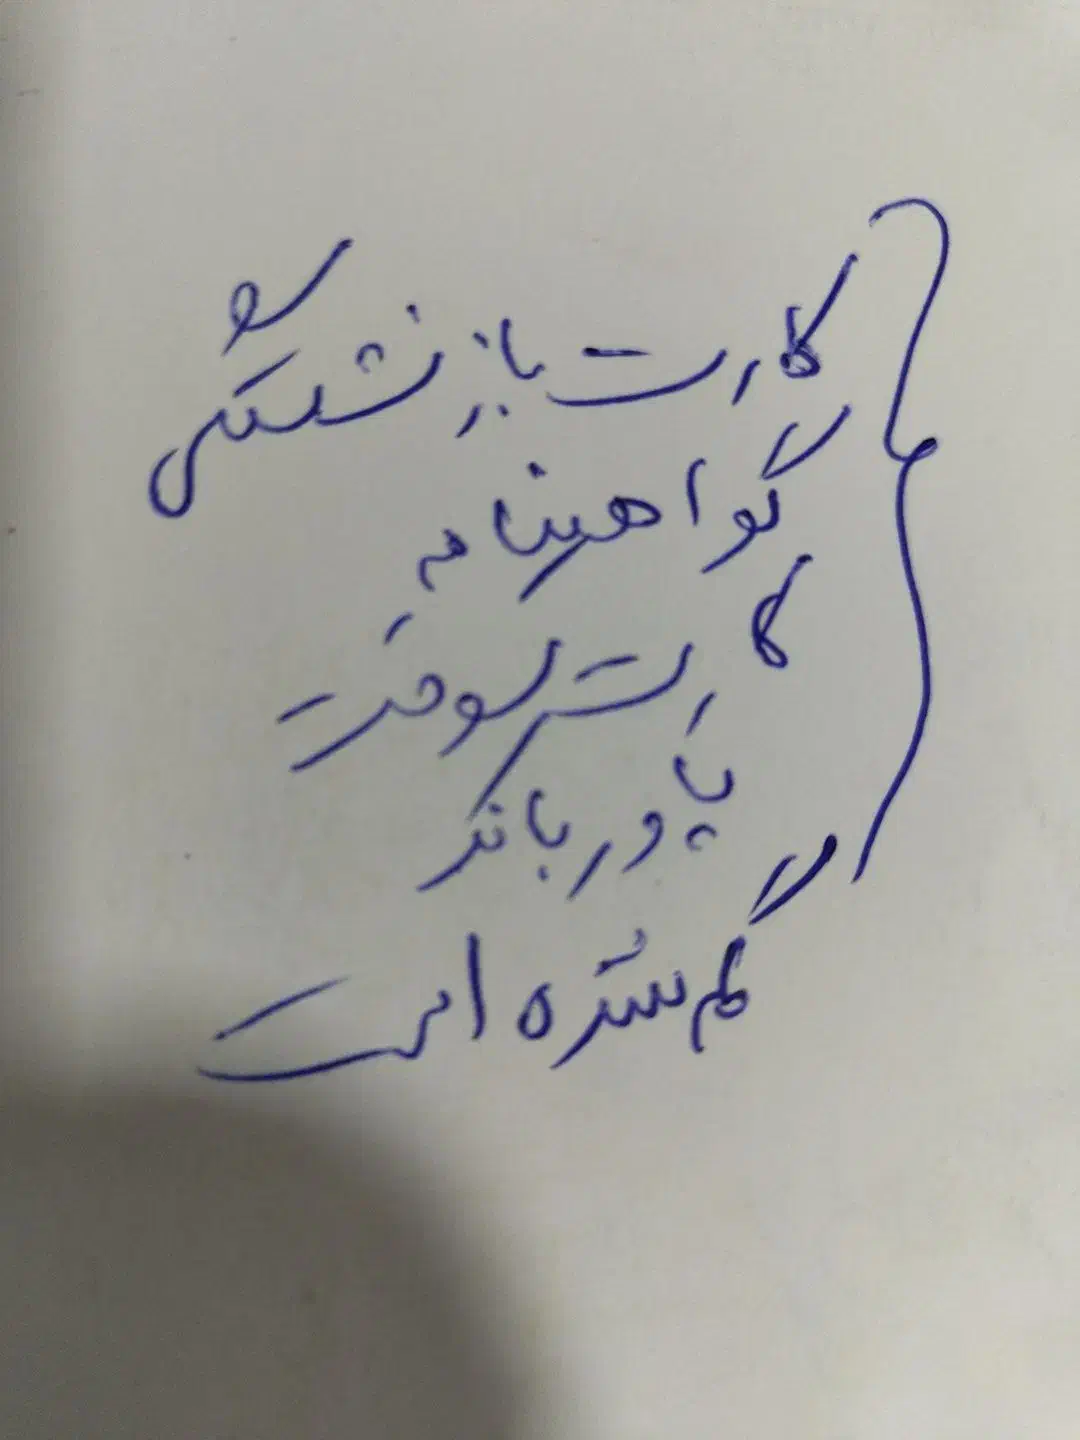 کارت بازنشستگی
گواهینامه
کارت سوخت
پاور بانک
گم شده است